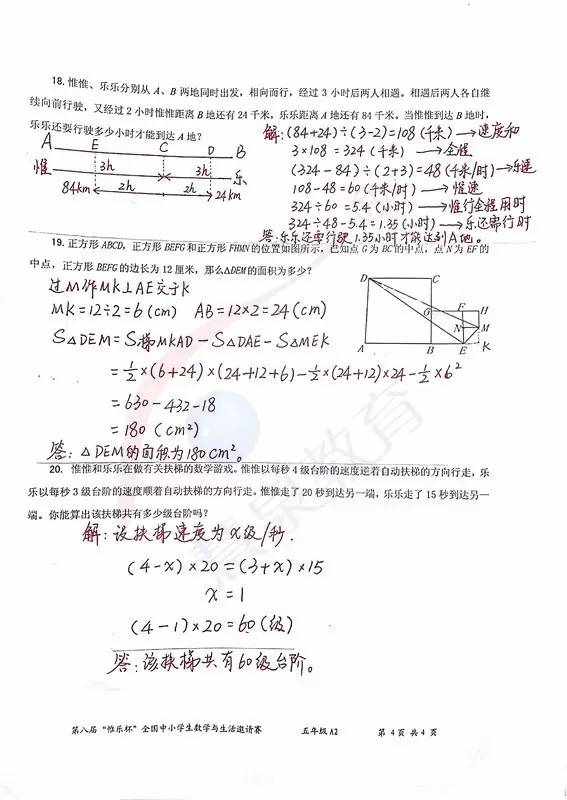 18. 惟惟、乐乐分别从 A、B 两地同时出发，相向而行，经过 3 小时后两人相遇。相遇后两人各自继
续向前行驶，又经过 2 小时惟惟距离 B 地还有 24 千米，乐乐距离 A 地还有 84 千米。当惟惟到达 B 地时，
乐乐还要行驶多少小时才能到达 A 地？
解：(84+24)÷(3-2)=108(千米)→速度和
A E C D B
3×108=324(千米)→全程
惟 3h 3h 乐
(324-84)÷(2+3)=48(千米/时)→乐速
84km 2h 2h 24km
108-48=60(千米/时)→惟速
324÷60=5.4(小时)→惟行全程用时
324÷48-5.4=1.35(小时)→乐还需行时
答：乐乐还要行驶1.35小时才能达到A地。
19. 正方形 ABCD，正方形 BEFG 和正方形 FHMN 的位置如图所示，已知点 G 为 BC 的中点，点 N 为 EF 的
中点，正方形 BEFG 的边长为 12 厘米，那么△DEM 的面积为多少？
过M作MK⊥AE交于K
MK=12÷2=6(cm) AB=12×2=24(cm)
S△DEM=S梯MKAD-S△DAE-S△MEK
=½×(6+24)×(24+12+6)-½×(24+12)×24-½×6²
=630-432-18
=180(cm²)
答：△DEM的面积为180cm²。
D C
G F H
N M
A B E K
20. 惟惟和乐乐在做有关扶梯的数学游戏。惟惟以每秒 4 级台阶的速度逆着自动扶梯的方向行走，乐
乐以每秒 3 级台阶的速度顺着自动扶梯的方向行走。惟惟走了 20 秒到达另一端，乐乐走了 15 秒到达另一
端。你能算出该扶梯共有多少级台阶吗？
解：设扶梯速度为x级/秒.
(4-x)×20=(3+x)×15
x=1
(4-1)×20=60(级)
答：该扶梯共有60级台阶。
慧泉教育
第八届“惟乐杯”全国中小学生数学与生活邀请赛 五年级 A2 第 4 页 共 4 页